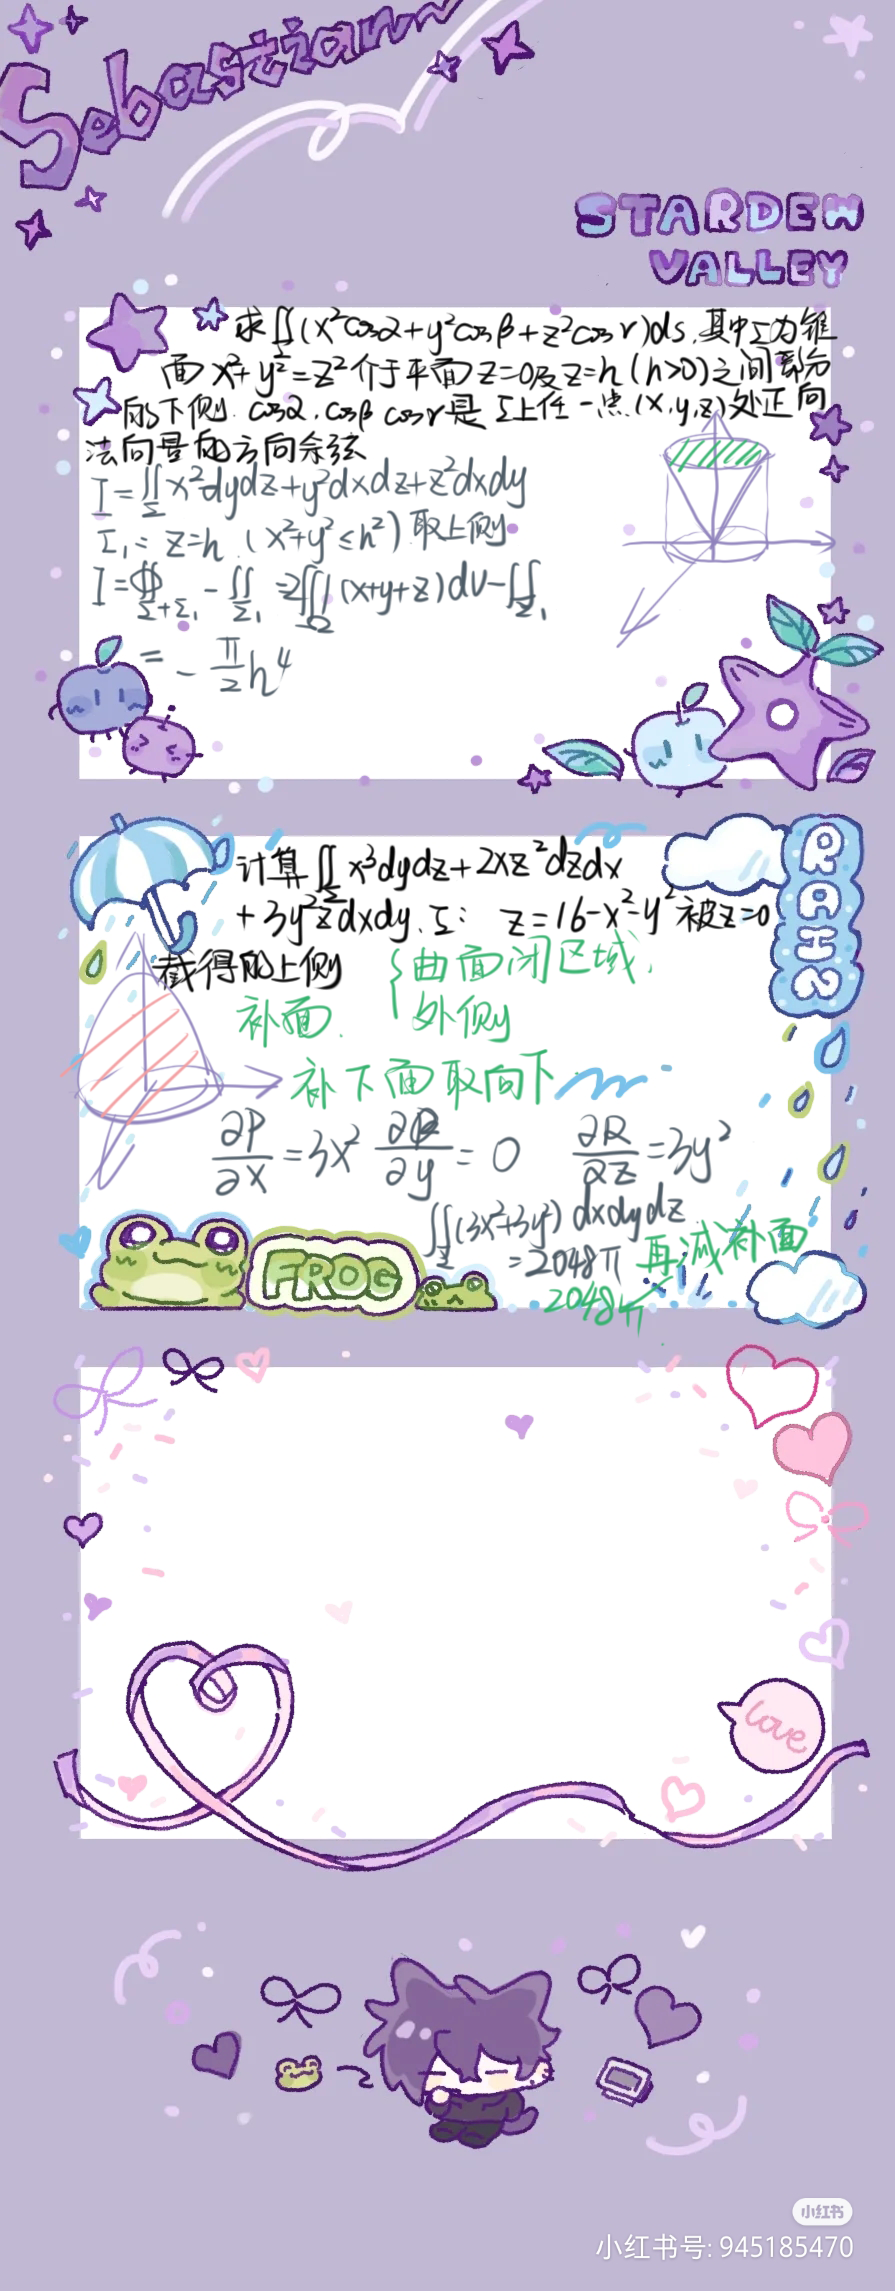 Sebastian
STARDEW
VALLEY
求∬(x²cosα+y²cosβ+z²cosγ)ds.其中Σ为锥
面x²+y²=z²介于平面z=0及z=h(h>0)之间部分
的下侧.cosα.cosβ cosγ是Σ上任一点(x,y,z)处正向
法向量的方向余弦
I=∬_Σ x²dydz+y²dxdz+z²dxdy
Σ₁: z=h.(x²+y²≤h²)取上侧
I=∯_{Σ+Σ₁} - ∬_{Σ₁} =2∭_Ω(x+y+z)dv-∬_{Σ₁}
= - π/2 h⁴
计算∬_Σ x³dydz+2xz²dzdx
+3y²zdxdy.Σ: z=16-x²-y²被z=0
截得的上侧
{曲面闭区域.
外侧
补面.
补下面取向下
∂P/∂x=3x² ∂Q/∂y=0 ∂R/∂z=3y²
∬_Σ(3x²+3y²)dxdydz
=2048π 再减补面
2048π
RAIN
FROG
love
小红书
小红书号: 945185470